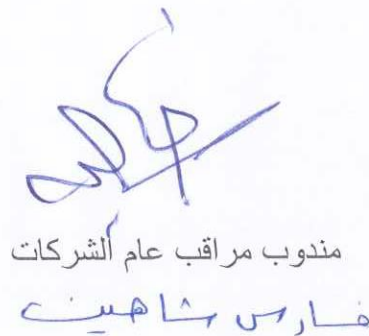 مندوب مراقب عام الشركات
فارس شاهين